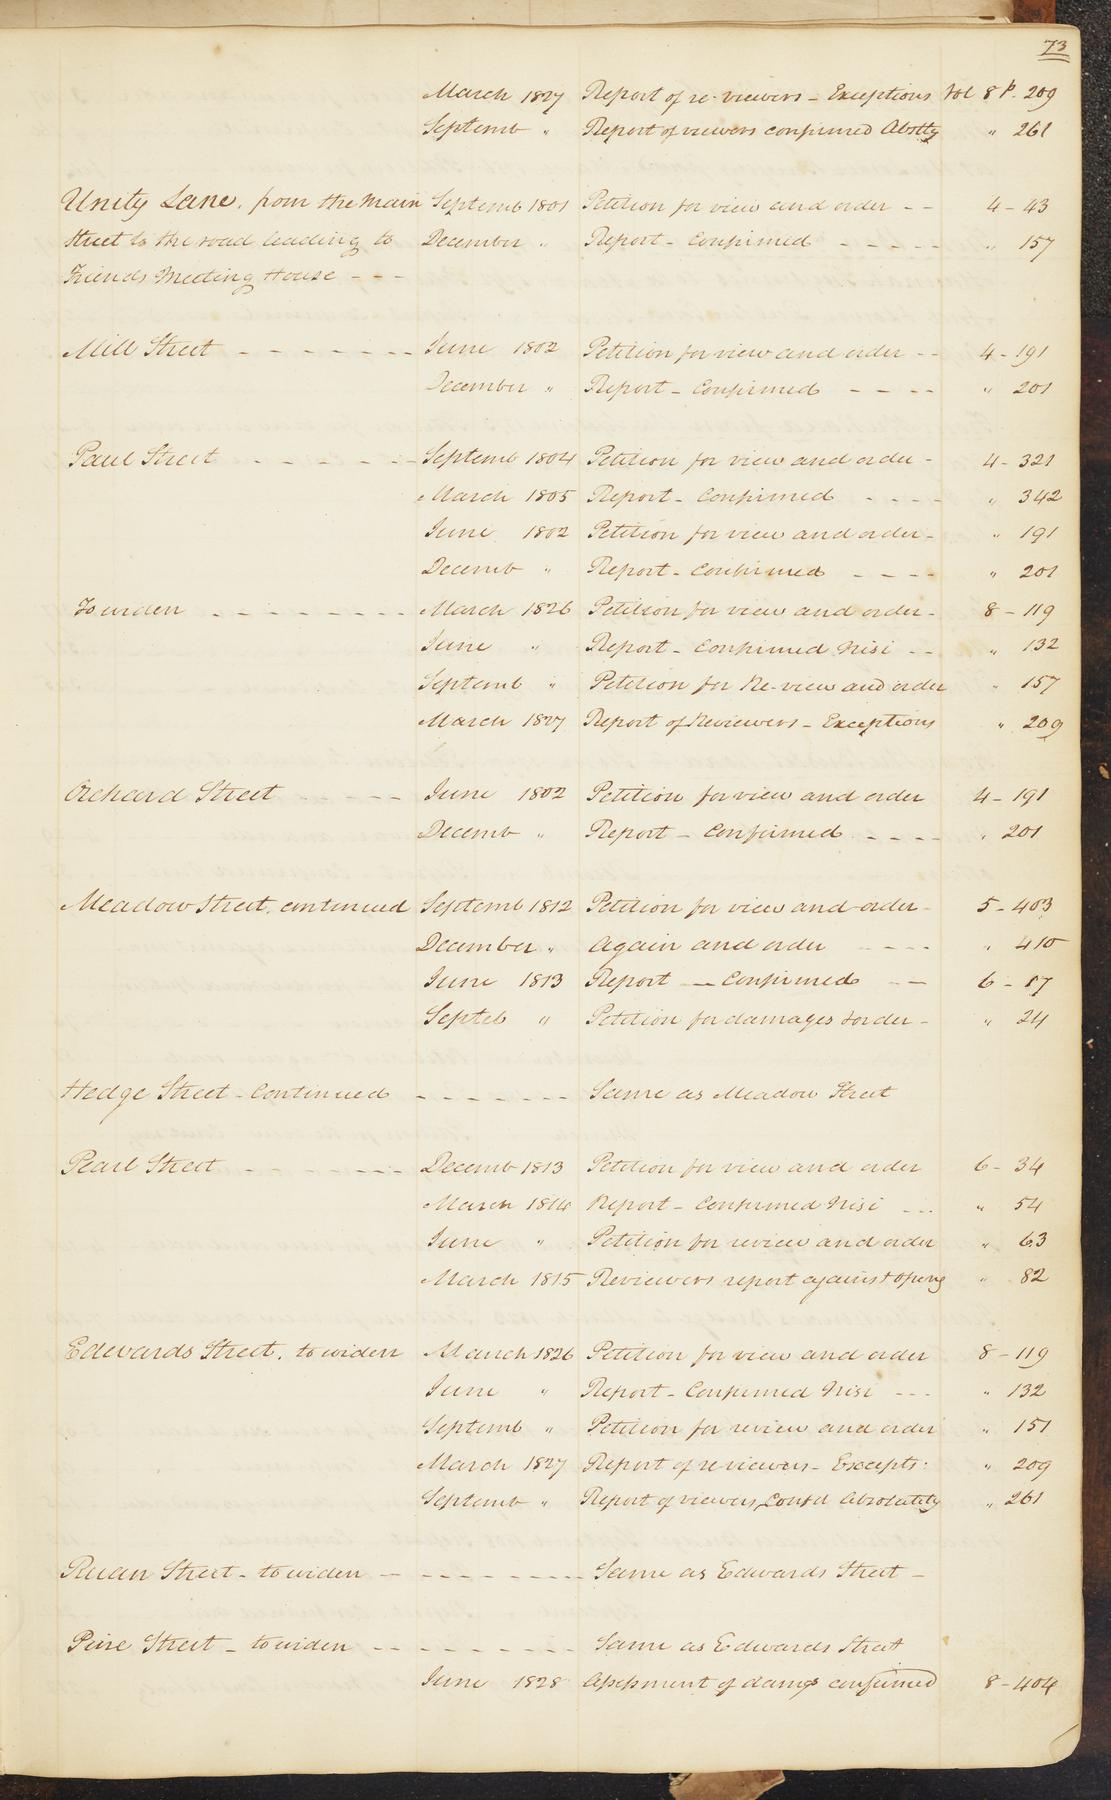 73
March 1827 Report of re-viewers - Exceptions Vol 8 P. 209
Septemb " Report of viewers confirmed Abstly " 261
Unity Lane, from the main Septemb 1801 Petition for view and order - - 4 - 43
street to the road leading to December " Report - Confirmed - - - - - " 157
Friends Meeting House - - -
Mill Street - - - - - - - June 1802 Petition for view and order - - 4 - 191
December " Report - Confirmed - - - - " 201
Paul Street - - - - - - Septemb 1804 Petition for view and order - 4 - 321
March 1805 Report - Confirmed - - - - " 342
June 1802 Petition for view and order - " 191
Decemb " Report - Confirmed - - - - " 201
To widen - - - - - - - - March 1826 Petition for view and order - 8 - 119
June " Report - Confirmed Nisi - - " 132
Septemb " Petition for Re-view and order " 157
March 1827 Report of Reviewers - Exceptions " 209
Orchard Street - - - - - June 1802 Petition for view and order 4 - 191
Decemb " Report - Confirmed - - - - " 201
Meadow Street, continued Septemb 1812 Petition for view and order - 5 - 403
December " Again and order - - - - " 410
June 1813 Report - Confirmed - - 6 - 17
Septeb " Petition for damages & order - " 24
Hedge Street - Continued - - - - - - - Same as Meadow Street
Pearl Street - - - - - - - Decemb 1813 Petition for view and order 6 - 34
March 1814 Report - Confirmed Nisi - - - " 54
June " Petition for review and order " 63
March 1815 Reviewers report against openg " 82
Edwards Street, to widen March 1826 Petition for view and order 8 - 119
June " Report - Confirmed Nisi - - - " 132
Septemb " Petition for review and order " 151
March 1827 Report of reviewers - Excepts: " 209
Septemb " Report of viewers, Confd Absolutely " 261
Ruan Street - to widen - - - - - - - - - Same as Edwards Street -
Pine Street - to widen - - - - - - - - Same as Edwards Street
June 1828 Assessment of damgs confirmed 8 - 404